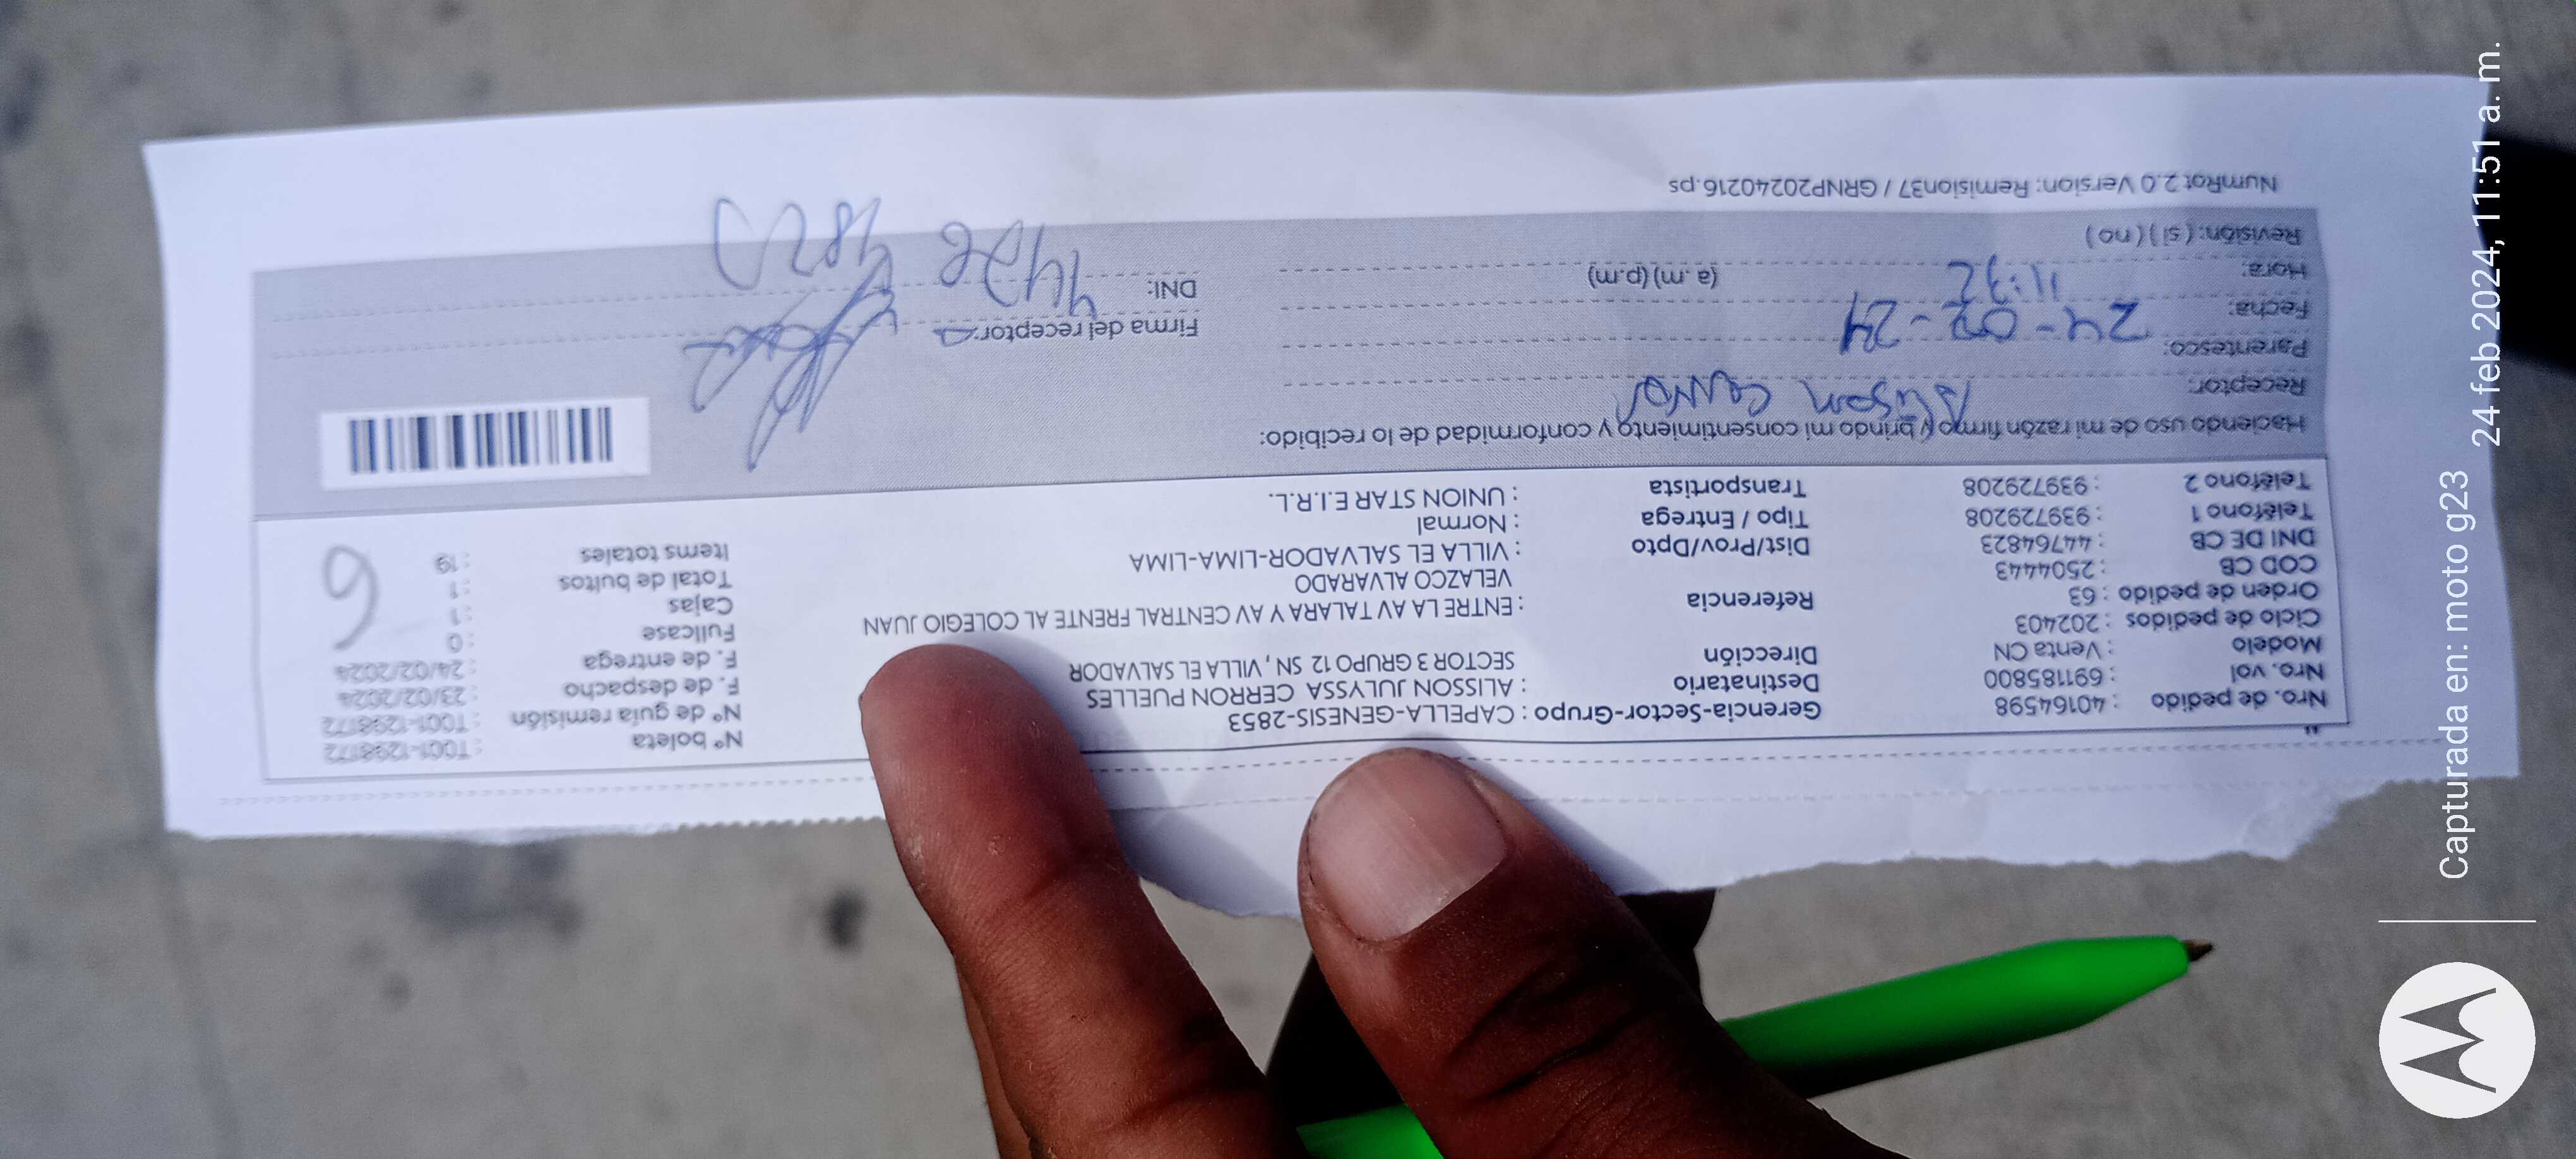 Nro. de pedido : 40164598
Nro. vol : 691185800
Modelo : Venta CN
Ciclo de pedidos : 202403
Orden de pedido : 63
COD CB : 2504443
DNI DE CB : 44764823
Teléfono 1 : 939729208
Teléfono 2 : 939729208
Gerencia-Sector-Grupo : CAPELLA-GENESIS-2853
Destinatario : ALISSON JULYSSA CERRON PUELLES
Dirección SECTOR 3 GRUPO 12 SN , VILLA EL SALVADOR
Referencia : ENTRE LA AV TALARA Y AV CENTRAL FRENTE AL COLEGIO JUAN
VELAZCO ALVARADO
Dist/Prov/Dpto : VILLA EL SALVADOR-LIMA-LIMA
Tipo / Entrega : Normal
Transportista : UNION STAR E.I.R.L.
N° boleta : T001-1298172
N° de guía remisión : T001-1298172
F. de despacho : 23/02/2024
F. de entrega : 24/02/2024
Fullcase : 0
Cajas : 1
Total de bultos : 1
Items totales : 19
6
Haciendo uso de mi razón firmo y brindo mi consentimiento y conformidad de lo recibido:
Receptor: Alisson
Parentesco:
Fecha: 24-02-24
Hora: 11:32 (a .m) (p.m)
Revisión: ( si ) ( no )
Firma del receptor:
DNI: 4476 4823
NumRot 2.0 Version: Remision37 / GRNP20240216.ps
Capturada en: moto g23
24 feb 2024, 11:51 a. m.